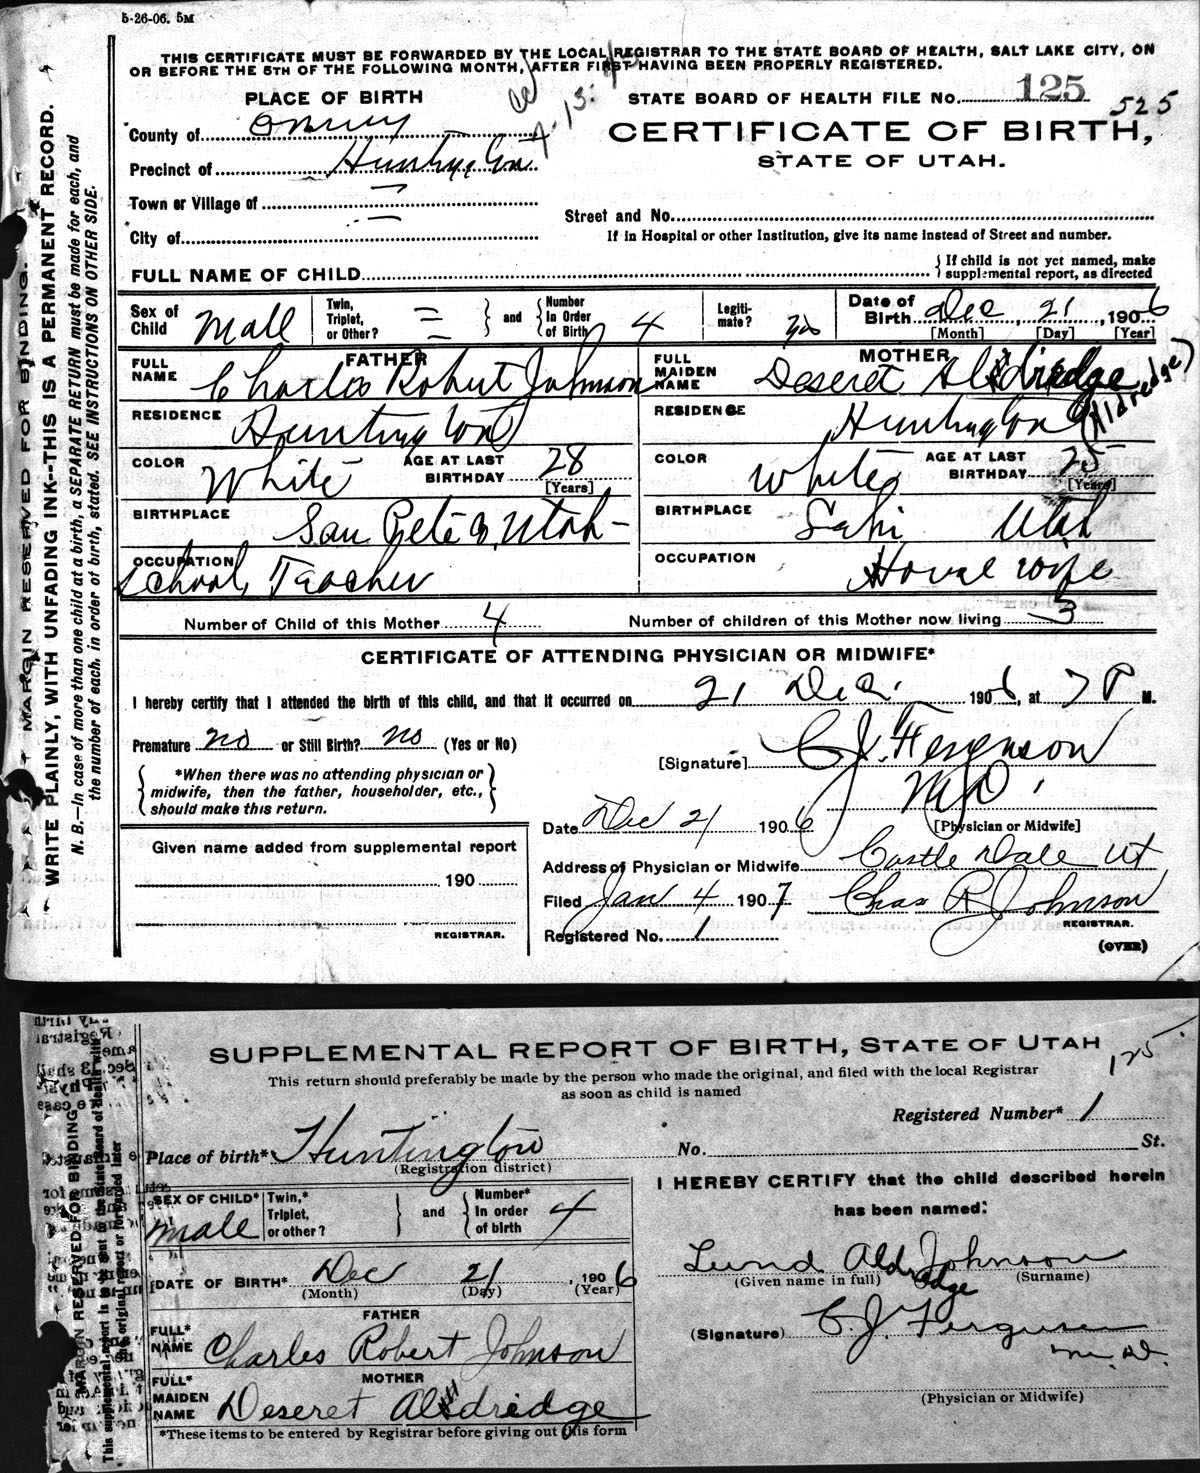 5-26-06. 5M
THIS CERTIFICATE MUST BE FORWARDED BY THE LOCAL REGISTRAR TO THE STATE BOARD OF HEALTH, SALT LAKE CITY, ON
OR BEFORE THE 5TH OF THE FOLLOWING MONTH, AFTER FIRST HAVING BEEN PROPERLY REGISTERED.
PLACE OF BIRTH
STATE BOARD OF HEALTH FILE No. 125 525
County of Emery
CERTIFICATE OF BIRTH,
STATE OF UTAH.
Precinct of Huntington
Town or Village of —
Street and No.
City of —
If in Hospital or other Institution, give its name instead of Street and number.
FULL NAME OF CHILD
{ If child is not yet named, make
supplemental report, as directed
Sex of Child Male
Twin, Triplet, or Other? =
and Number In Order of Birth 4
Legitimate? yes
Date of Birth Dec, 21, 1906
[Month] [Day] [Year]
FATHER
FULL NAME Charles Robert Johnson
MOTHER
FULL MAIDEN NAME Deseret Aldridge
(Aldredge)
RESIDENCE Huntington
RESIDENCE Huntington
COLOR White AGE AT LAST BIRTHDAY 28 [Years]
COLOR White AGE AT LAST BIRTHDAY 25 [Years]
BIRTHPLACE San Pete Co, Utah-
BIRTHPLACE Utah
OCCUPATION School Teacher
OCCUPATION House wife
Number of Child of this Mother 4
Number of children of this Mother now living 3
CERTIFICATE OF ATTENDING PHYSICIAN OR MIDWIFE*
I hereby certify that I attended the birth of this child, and that it occurred on 21 Dec. 1906, at 7 P M.
Premature no or Still Birth? no (Yes or No)
[Signature] C. J. Ferguson
M.D.
[Physician or Midwife]
*When there was no attending physician or
midwife, then the father, householder, etc.,
should make this return.
Date Dec 21 1906
Given name added from supplemental report
190
REGISTRAR.
Address of Physician or Midwife Castle Dale Ut
Filed Jan 4 1907 Chas R Johnson
REGISTRAR.
Registered No. 1
(OVER)
MARGIN RESERVED FOR BINDING.
WRITE PLAINLY, WITH UNFADING INK--THIS IS A PERMANENT RECORD.
N. B.—In case of more than one child at a birth, a SEPARATE RETURN must be made for each, and
the number of each, in order of birth, stated. SEE INSTRUCTIONS ON OTHER SIDE.
SUPPLEMENTAL REPORT OF BIRTH, STATE OF UTAH
125
This return should preferably be made by the person who made the original, and filed with the local Registrar
as soon as child is named
Registered Number* 1
Place of birth* Huntington
(Registration district)
No. St.
SEX OF CHILD* male
Twin,* Triplet, or other?
and Number* In order of birth 4
I HEREBY CERTIFY that the child described herein
has been named:
Lund Aldredge Johnson
(Given name in full) (Surname)
DATE OF BIRTH* Dec 21, 1906
(Month) (Day) (Year)
FATHER
FULL* NAME Charles Robert Johnson
(Signature) C. J. Ferguson
M.D.
(Physician or Midwife)
MOTHER
FULL* MAIDEN NAME Deseret Aldridge
*These items to be entered by Registrar before giving out this form
MARGIN RESERVED FOR BINDING
This supplemental report is to be sent to the State Board of Health with
the original report or forwarded later